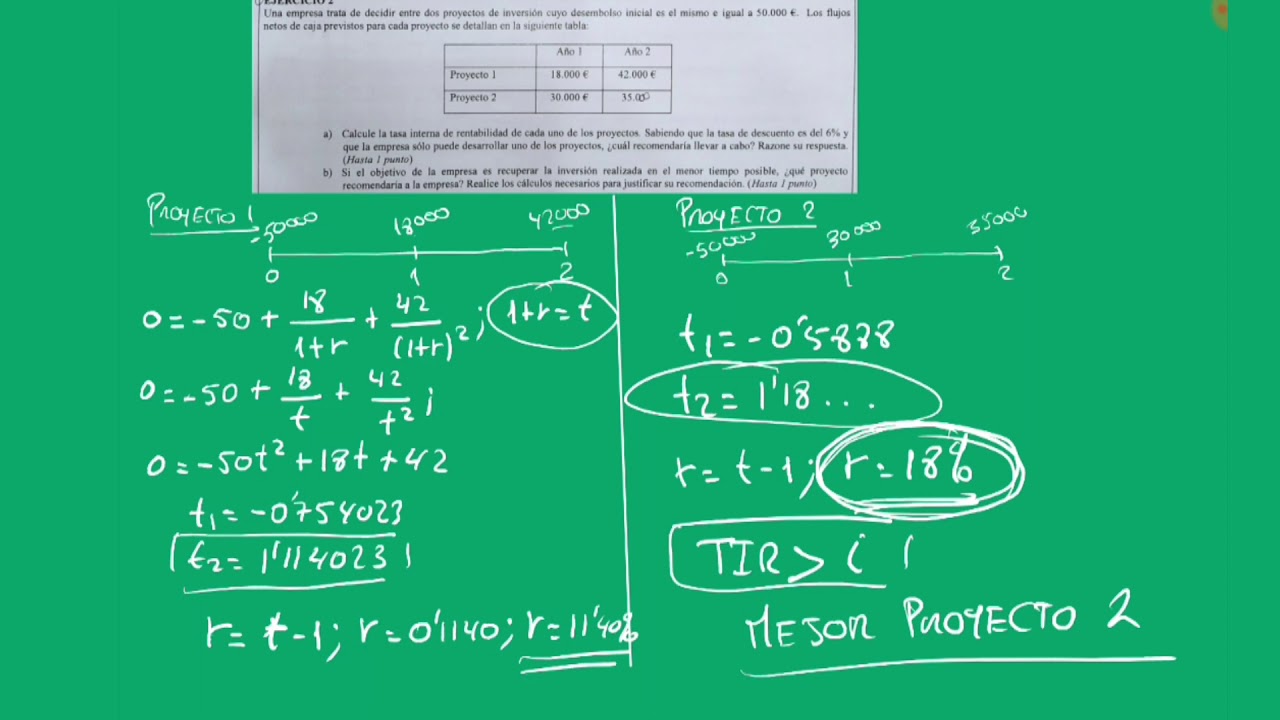 EJERCICIO 2
Una empresa trata de decidir entre dos proyectos de inversión cuyo desembolso inicial es el mismo e igual a 50.000 €. Los flujos
netos de caja previstos para cada proyecto se detallan en la siguiente tabla:
Año 1 Año 2
Proyecto 1 18.000 € 42.000 €
Proyecto 2 30.000 € 35.000
a) Calcule la tasa interna de rentabilidad de cada uno de los proyectos. Sabiendo que la tasa de descuento es del 6% y
que la empresa sólo puede desarrollar uno de los proyectos, ¿cuál recomendaría llevar a cabo? Razone su respuesta.
(Hasta 1 punto)
b) Si el objetivo de la empresa es recuperar la inversión realizada en el menor tiempo posible, ¿qué proyecto
recomendaría a la empresa? Realice los cálculos necesarios para justificar su recomendación. (Hasta 1 punto)
PROYECTO 1
-50000 18000 42000
0 1 2
0 = -50 + 18/(1+r) + 42/(1+r)²; 1+r=t
0 = -50 + 18/t + 42/t²;
0 = -50t² + 18t + 42
t₁ = -0'754023
t₂ = 1'114023
r = t-1; r=0'1140; r=11'40%
PROYECTO 2
-50000 30000 35000
0 1 2
t₁ = -0'5888
t₂ = 1'18...
r = t-1; r=18%
TIR > i
MEJOR PROYECTO 2